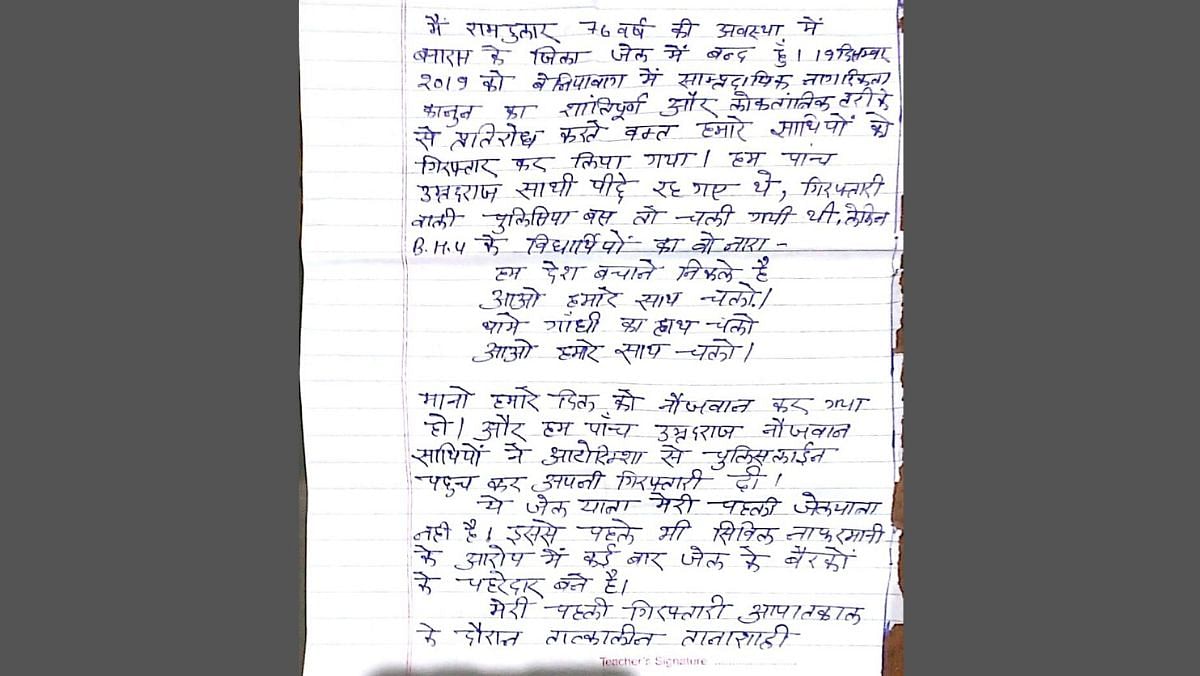 मैं रामदुलार 76 वर्ष की अवस्था में
बनारस के जिला जेल में बन्द हुँ। 19 दिसम्बर
2019 को बेनियाबाग में साम्प्रदायिक नागरिकता
कानुन का शांतिपूर्ण और लोकतांत्रिक तरीके
से प्रतिरोध करते वक्त हमारे साथियों को
गिरफ्तार कर लिया गया। हम पांच
उम्रदराज साथी पीछे रह गए थे, गिरफ्तारी
वाली पुलिसिया बस तो चली गयी थी, लेकिन
B.H.U के विधार्थियों का वो नारा -
हम देश बचाने निकले है
आओ हमारे साथ चलो।
थामे गाँधी का हाथ चलो
आओ हमारे साथ चलो।
मानो हमारे दिल को नौजवान कर गया
हो। और हम पाँच उम्रदराज नौजवान
साथियों ने आटोरिक्शा से पुलिसलाईन
पहुच कर अपनी गिरफ्तारी दी।
ये जेल यात्रा मेरी पहली जेलयात्रा
नही है। इससे पहले भी सिविल नाफरमानी
के आरोप में कई बार जेल के बैरकों
के पहरेदार बने है।
मेरी पहली गिरफ्तारी आपातकाल
के दौरान तात्कालीन तानाशाही
Teacher's Signature